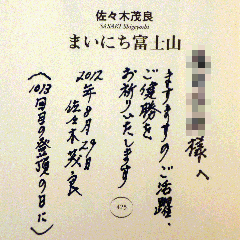 佐々木茂良
SASAKI Shigeyoshi
まいにち富士山
様へ
ますますのご活躍、
ご健勝を
お祈りいたします
2012年8月29日
佐々木茂良
(1013回目の登頂の日に)